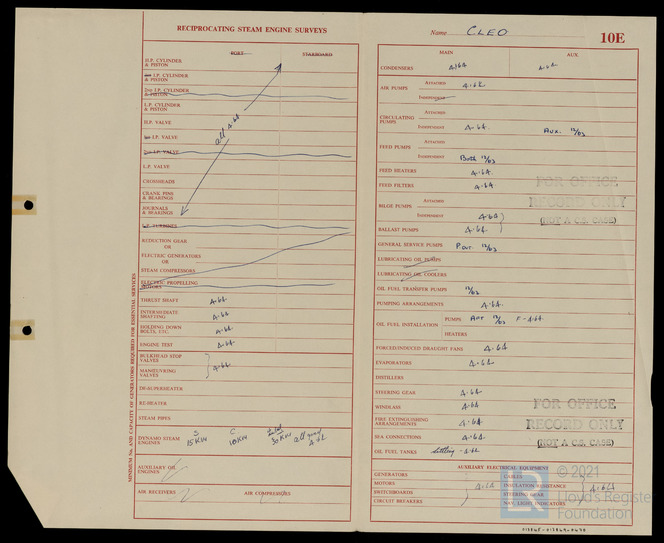 RECIPROCATING STEAM ENGINE SURVEYS
PORT STARBOARD
H.P. CYLINDER & PISTON
1st I.P. CYLINDER & PISTON
2nd I.P. CYLINDER & PISTON
L.P. CYLINDER & PISTON
H.P. VALVE
all 4.64
1st I.P. VALVE
2nd I.P. VALVE
L.P. VALVE
CROSSHEADS
CRANK PINS & BEARINGS
JOURNALS & BEARINGS
L.P. TURBINES
REDUCTION GEAR
OR
ELECTRIC GENERATORS
OR
STEAM COMPRESSORS
ELECTRIC PROPELLING MOTORS
THRUST SHAFT 4.64
INTERMEDIATE SHAFTING 4.64
HOLDING DOWN BOLTS, ETC. 4.64
ENGINE TEST 4.64
BULKHEAD STOP VALVES
MANŒUVRING VALVES 4.64
DE-SUPERHEATER
RE-HEATER
STEAM PIPES
DYNAMO STEAM ENGINES 15KW 10KW 30KW all good 4.64
AUXILIARY OIL ENGINES
AIR RECEIVERS AIR COMPRESSORS
MINIMUM No. AND CAPACITY OF GENERATORS REQUIRED FOR ESSENTIAL SERVICES
Name CLEO 10E
MAIN AUX.
CONDENSERS 4/64 4.64
AIR PUMPS ATTACHED 4.64
INDEPENDENT
CIRCULATING PUMPS ATTACHED
INDEPENDENT 4.64. Aux. 12/63
FEED PUMPS ATTACHED
INDEPENDENT Both 12/63
FEED HEATERS 4.64.
FEED FILTERS 4.64.
FOR OFFICE
RECORD ONLY
(NOT A C.S. CASE)
BILGE PUMPS ATTACHED
INDEPENDENT 4.64
BALLAST PUMPS 4.64
GENERAL SERVICE PUMPS Port 12/63
LUBRICATING OIL PUMPS
LUBRICATING OIL COOLERS
OIL FUEL TRANSFER PUMPS 12/63
PUMPING ARRANGEMENTS 4.64.
OIL FUEL INSTALLATION PUMPS Aft 12/63 F-4.64.
HEATERS
FORCED/INDUCED DRAUGHT FANS 4.64
EVAPORATORS 4.64
DISTILLERS
STEERING GEAR 4.64
WINDLASS 4.64
FIRE EXTINGUISHING ARRANGEMENTS 4.64
SEA CONNECTIONS 4.64.
OIL FUEL TANKS Settling 4.64
FOR OFFICE
RECORD ONLY
(NOT A C.S. CASE)
AUXILIARY ELECTRICAL EQUIPMENT
GENERATORS CABLES
MOTORS 4.64 INSULATION RESISTANCE 4.64
SWITCHBOARDS STEERING GEAR
CIRCUIT BREAKERS NAV. LIGHT INDICATORS
© 2021
LR
Lloyd's Register
Foundation